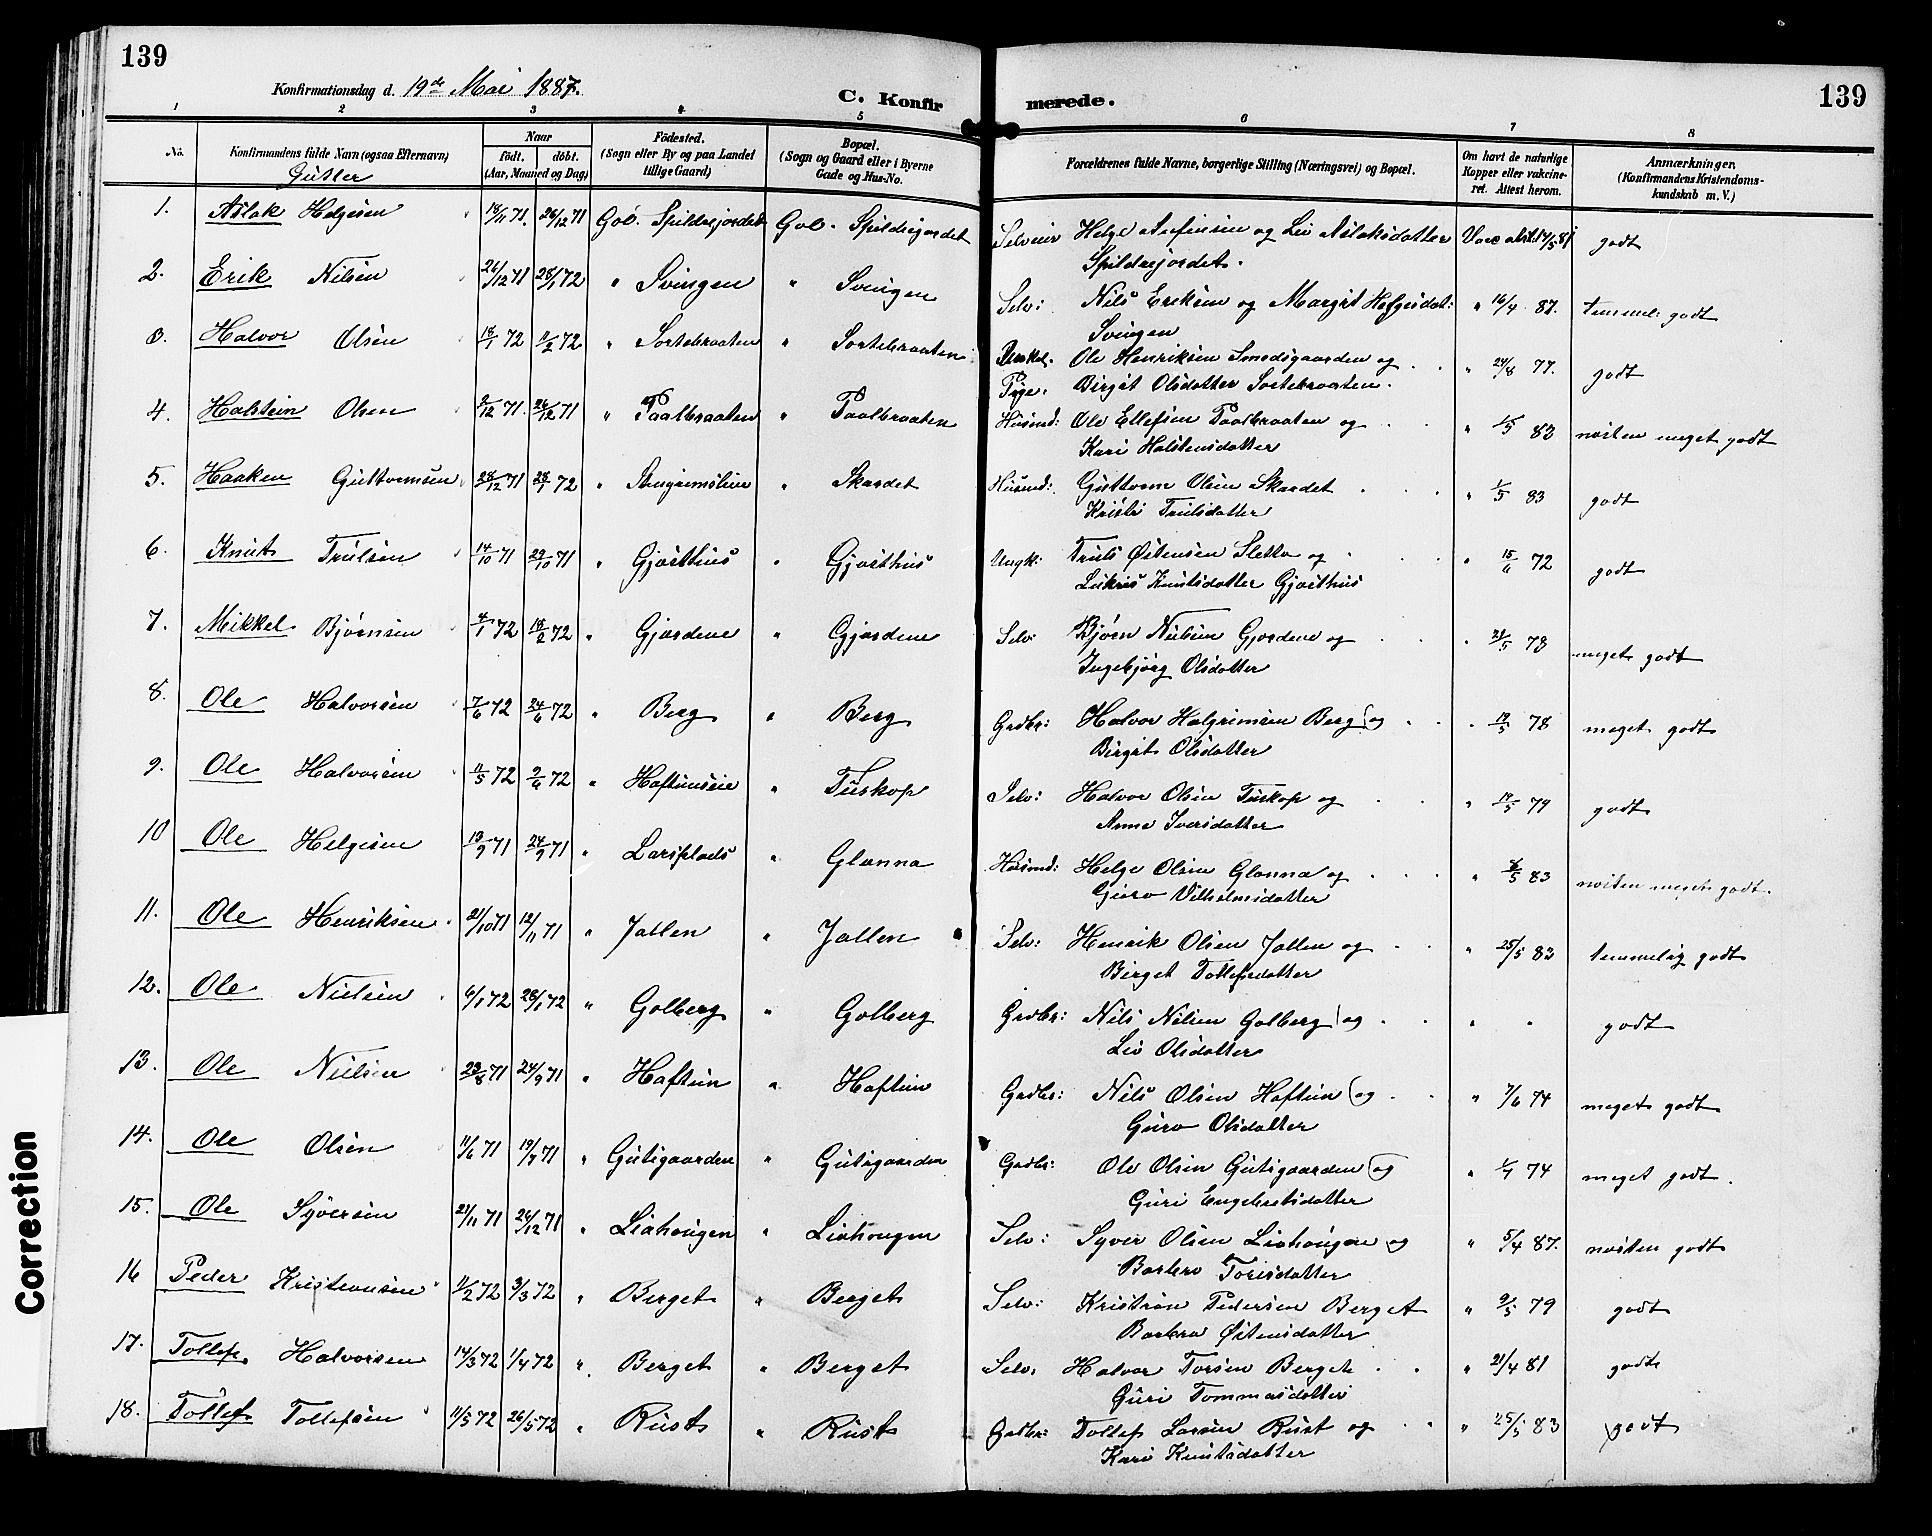 139
139
Konfirmationsdag d. 19de Mai 1887.
C. Konfirmerede.
1 2 3 4 5 6 7 8
No. Konfirmandens fulde Navn (ogsaa Efternavn) Naar født. døbt. (Aar, Maaned og Dag) Fødested. (Sogn eller By og paa Landet tillige Gaard) Bopæl. (Sogn og Gaard eller i Byerne Gade og Hus-No. Forældrenes fulde Navne, borgerlige Stilling (Næringsvei) og Bopæl. Om havt de naturlige Kopper eller vakcineret. Attest herom. Anmærkninger, (Konfirmandens Kristendomskundskab m. V.)
Gutter
1. Aslak Helgesen 18/11 71. 26/12 71 Gol. Spildrejordet Gol. Spildrejordet Selveier Helge Arfinsen og Liv Aslaksdatter Vacc. 81 godt
Spildrejordet.
2. Erik Nilsen 26/12 71 28/1 72 " Svingen " Svingen Selv: Nils Eriksen og Margit Helgesdat: " 16/4 87. temmel: godt
Svingen
3. Halvor Olsen 18/1 72 72 " Sortebraaten " Sortebraaten Ole Henriksen Smedsgaarden og " 24/8 77. godt
Pige. Birgit Olsdatter Sortebraaten.
4. Halstein Olsen 2/12 71. 26/12 71 " Paalbraaten " Paalbraaten Husmd: Ole Ellefsen Paalbraaten og " 1/5 83 næsten meget godt
Kari Halstensdatter
5. Haaken Guttormsen 28/12 71 28/1 72 " " Skardet Husmd: Guttorm Olsen Skardet " 1/5 83 godt
Kristi Trulsdatter
6. Knut Trulsen 14/10 71 29/10 71 " Gjosthus " Gjosthus Ungk: Truls Østensen Sletto og " 15/6 72 godt
Lukris Knutsdatter Gjosthus
7. Mikkel Bjørnsen 4/1 72 18/2 72 " Gjordene " Gjordene Selv: Bjørn Nilsen Gjordene og " 24/5 78 meget godt
Ingebjørg Olsdatter
8. Ole Halvorsen 7/6 72 24/6 72 " Berg " Berg Grdbr: Halvor Halgrimsen Berg og " 19/5 78 meget godt
Birgit Olsdatter
9. Ole Halvorsen 11/5 72 9/6 72 " Haftunseie " Tuskop Selv: Halvor Olsen Tuskop og " 19/5 79 godt
Anne Iversdatter
10 Ole Helgesen 13/9 71 24/9 71 " Larsplads " Glanna Husmd: Helge Olsen Glanna og " 83 næsten meget godt.
Guro Vilhelmsdatter
11. Ole Henriksen 21/10 71 12/11 71 " Jallen " Jallen Selv: Henrik Olsen Jallen og " 25/5 83 temmelig godt
Birget Tollefsdatter
12. Ole Nielsen 6/1 72 28/1 72 " Golberg " Golberg Grdbr: Nils Nilsen Golberg og " " godt
Liv Olsdatter
13. Ole Nielsen 23/8 71 24/9 71 " Haftun " Haftun Grdbr: Nils Olsen Haftun og " 7/6 74 meget godt
Guro Olsdatter
14. Ole Olsen 11/6 71 19/7 71 " Gutsgaarden " Gutsgaarden Grdbr: Ole Olsen Gutsgaarden og " 74 meget godt.
Guri Engebretsdatter
15. Ole Syversen 21/11 71 26/12 71 " Liahougen " Liahougen Selv: Syver Olsen Liahougen og " 5/4 87. næsten godt
Barbro Torisdatter
16 Peder Kristiansen 11/2 72 3/3 72 " Berget " Berget Selv: Kristian Pedersen Berget " 9/5 79 godt
Barbro Østensdatter
17. Tollef Halvorsen 14/3 72 1/4 72 " Berget " Berget Selv: Halvor Torsen Berget " 21/4 81 godt
Guri Tommasdatter
18. Tollef Tollefsen 11/5 72 26/5 72 " Rust " Rust Grdbr: Tollef Larsen Rust og " 25/5 83 godt
Kari Knutsdatter
Correction